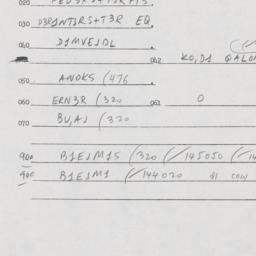 030 D3R1NTJRS+T3R EQ.
040 D1MVEJDL.
042 KO,D1 QALO
050 ANOKS (476
060 ERN3R (320 061 0
070 BU,AJ (320
900 B1EJM15 (320 (/145050 (/1
900 B1EJM1 (/144020 41 COW